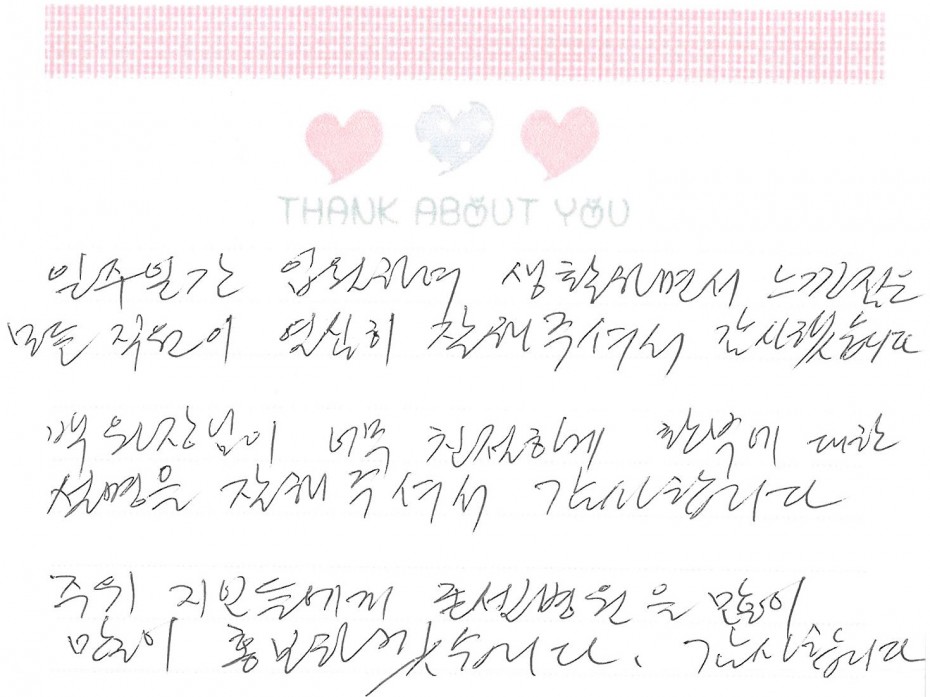 THANK ABOUT YOU
일주일간 입원하며 생활하면서 느낀점은
모든 직원이 열심히 잘해주셔서 감사했습니다
백원장님이 너무 친절하게 환부에 대한
설명을 잘해주셔서 감사합니다
주위 지인들에게 튼실병원을 많이
많이 홍보하겠습니다. 감사합니다